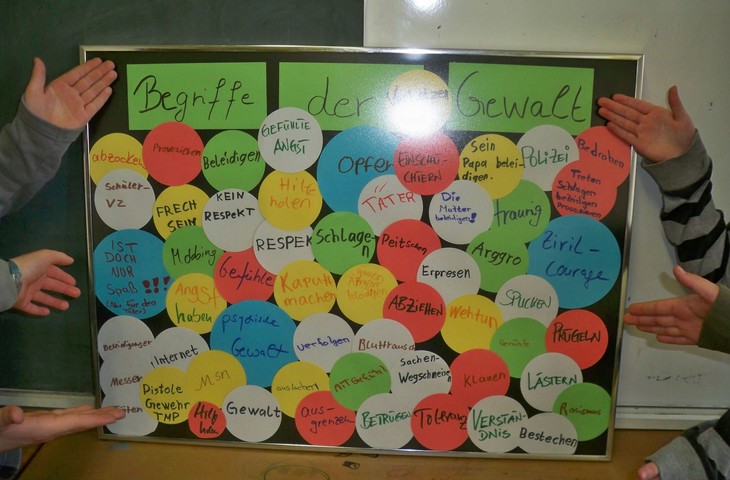 Begriffe der Gewalt
abzocken
Provozieren
Beleidigen
GEFÜHLTE
ANGST
OPFER
EINSCHÜ-
CHTERN
Sein
Papa belei-
digen.
POLIZEI
Bedrohen
Schüler-
VZ
FRECH
SEIN
KEIN
RESPEKT
Hilfe
holen
TÄTER
Die
Mutter
beleidigen!
traurig
Treten
Schlagen
beleidigen
Provozieren
IST
DOCH
NUR
SPAß!!!
(Nur für den
Täter)
Mobbing
Gefühle
RESPEKT
Schlagen
Peitschen
Erpresen
Arggro
Ziril-
courage
Angst
haben
Kaputt
machen
ABZIEHEN
Wehtun
SPUCKEN
PRÜGELN
psychische
Gewalt
verfolgen
Blutrausch
Sachen-
Wegschmeisen
Internet
Messer
Pistole
Gewehr
TMP
Msn
Hilfe
holen
Gewalt
auslachen
aus-
grenzen
BETRÜGEN
Toleranz
Klauen
VERSTÄN-
DNIS
LÄSTERN
Bestechen
Rassismus